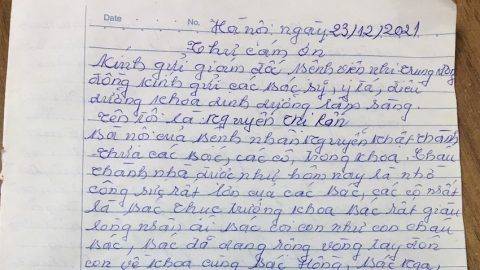 Date No. Hà nội ngày 23/12/2021
Thư cảm ơn
Kính gửi giám đốc Bệnh viện nhi trung ương
đồng kính gửi các Bác sỹ, y tá, điều
dưỡng khoa dinh dưỡng lâm sàng.
Tên tôi là Nguyễn Thị Lan
Bà nội của Bệnh nhân Nguyễn Khát Thành
Thưa các Bác, các cô, trong khoa. Cháu
thanh nhà được như hôm nay là nhờ
công sức rất lớn của các Bác, các cô nhất
là Bác Thục trưởng khoa Bác rất giàu
lòng nhân ái Bác coi con như con cháu
Bác, Bác đã dang rộng vòng tay đón
con về khoa cùng Bác Hồng, Bác Nga,